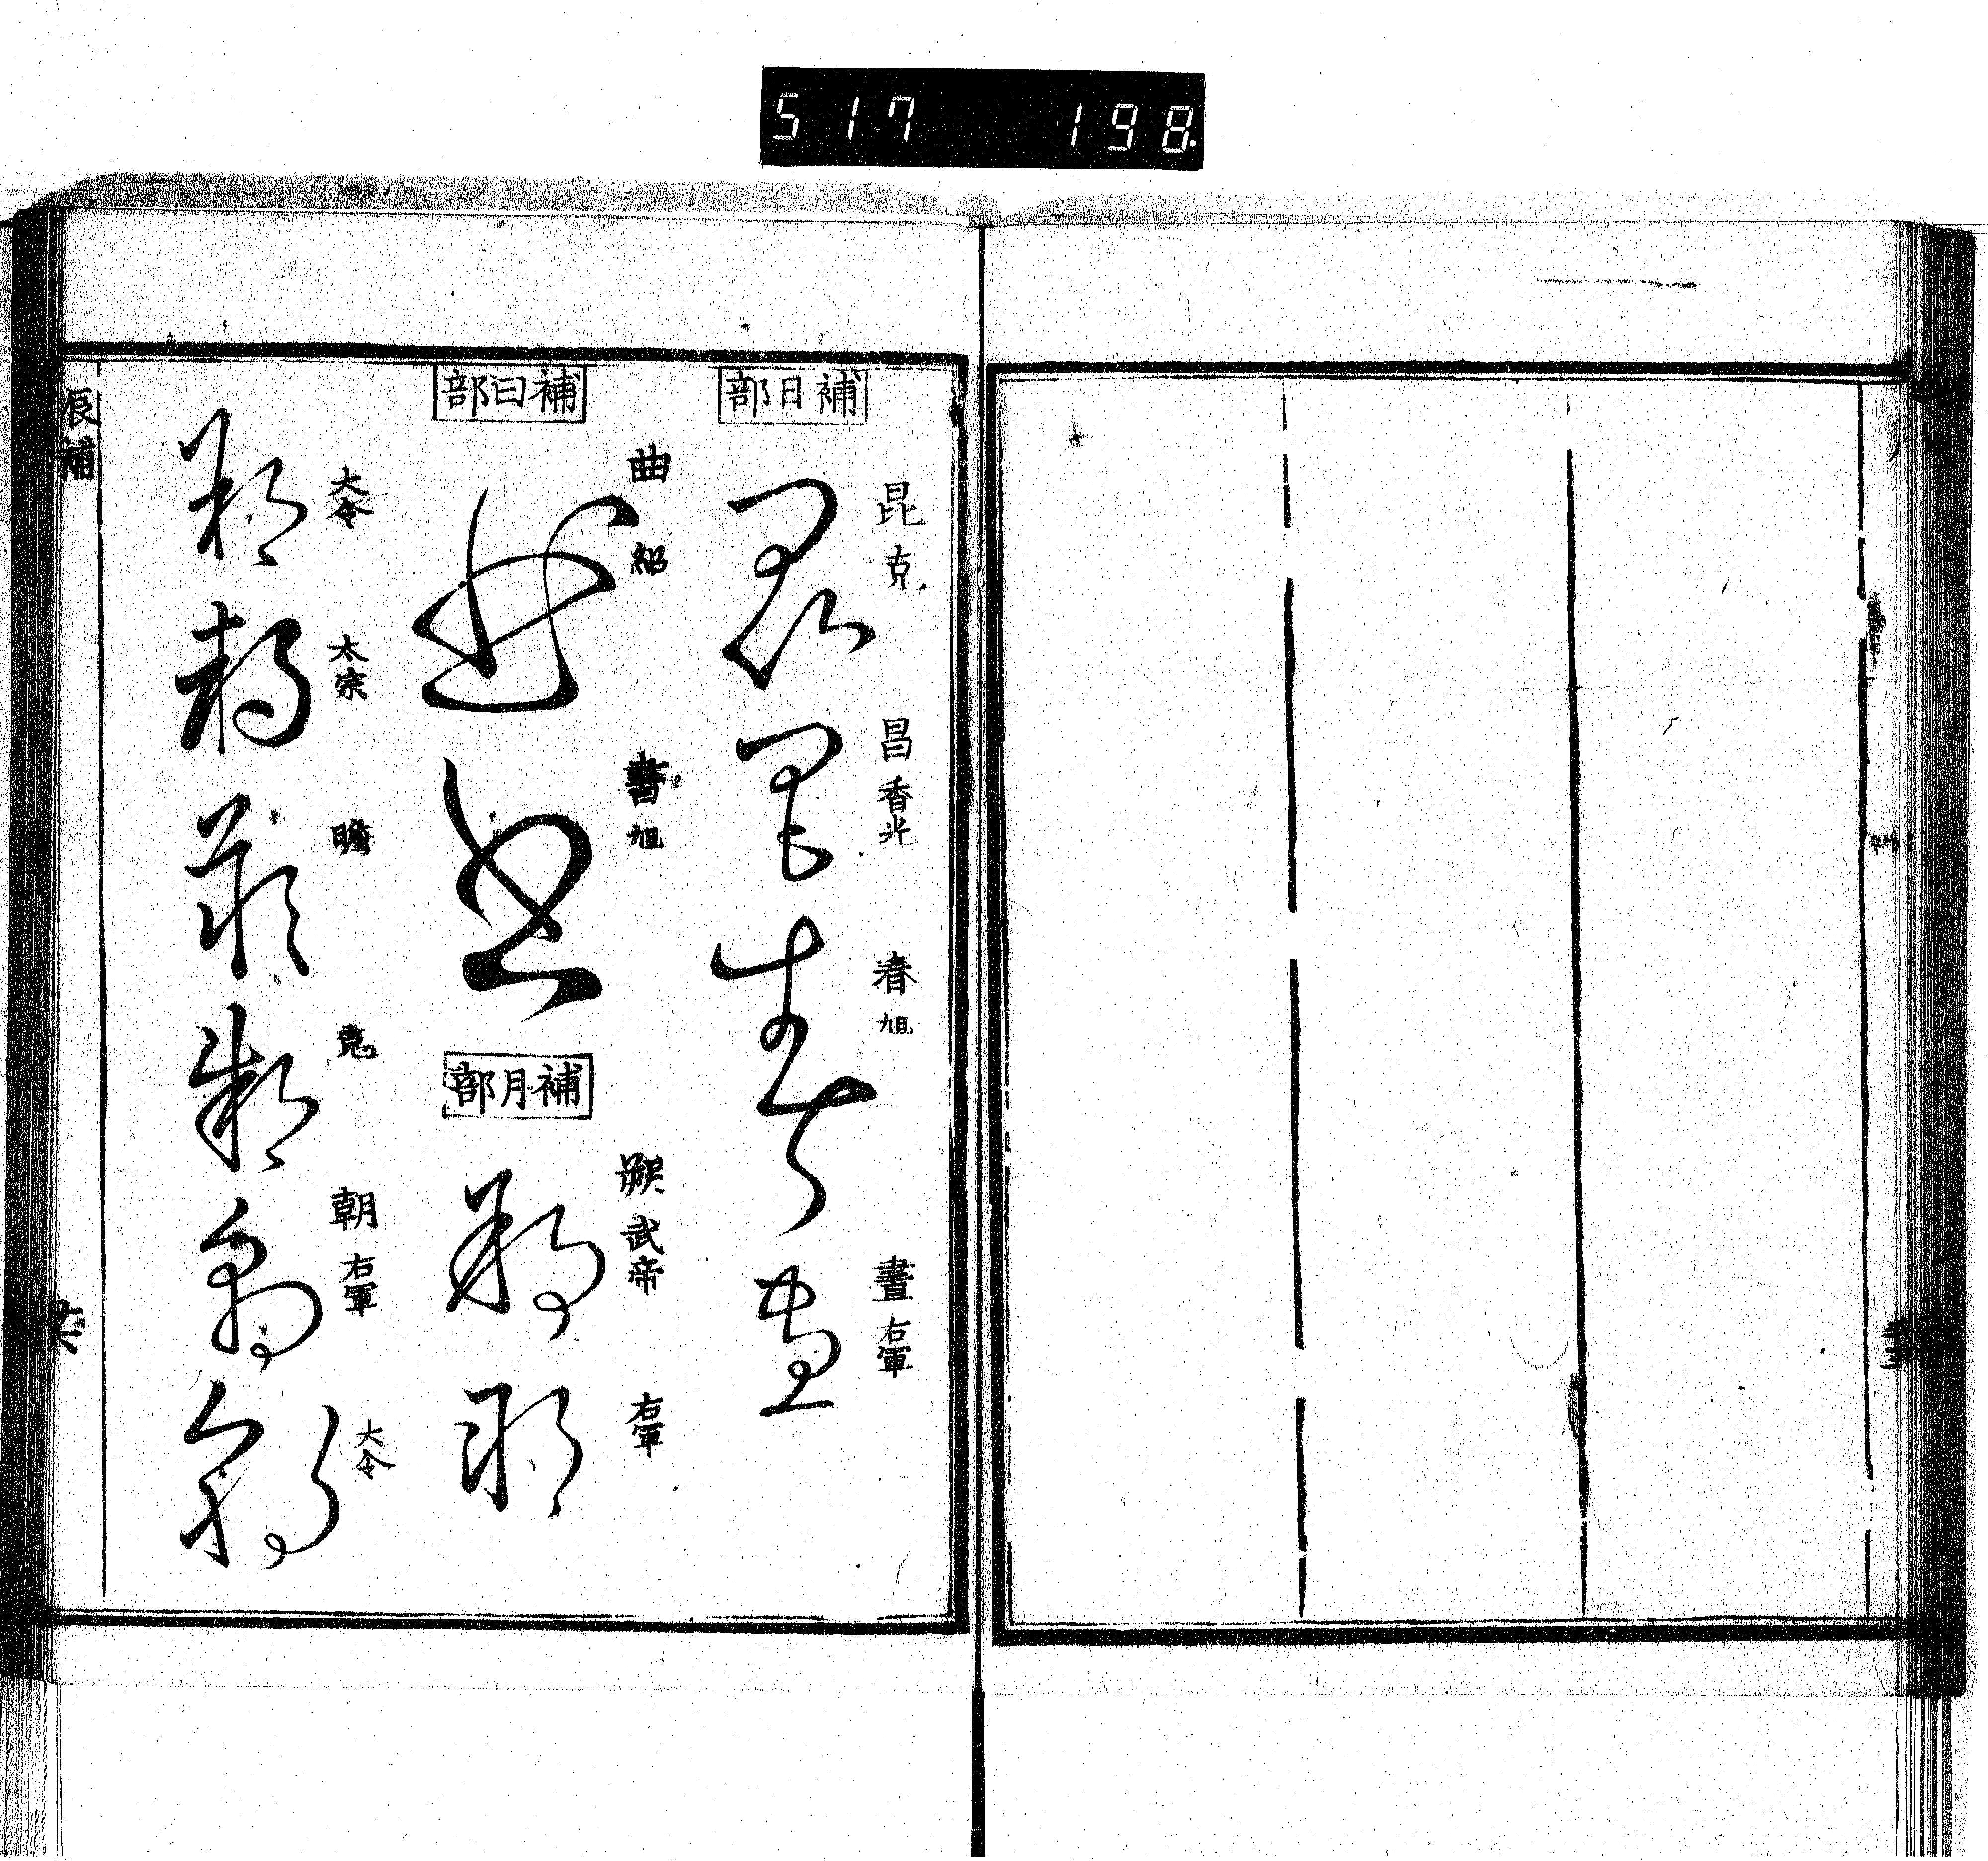 517 198
補日部
昆 克
昌 香光
春 旭
晝 右軍
補曰部
曲 紹
書 旭
補月部
朔 武帝
右軍
大令
太宗
瞻
克
朝 右軍
大令
辰補